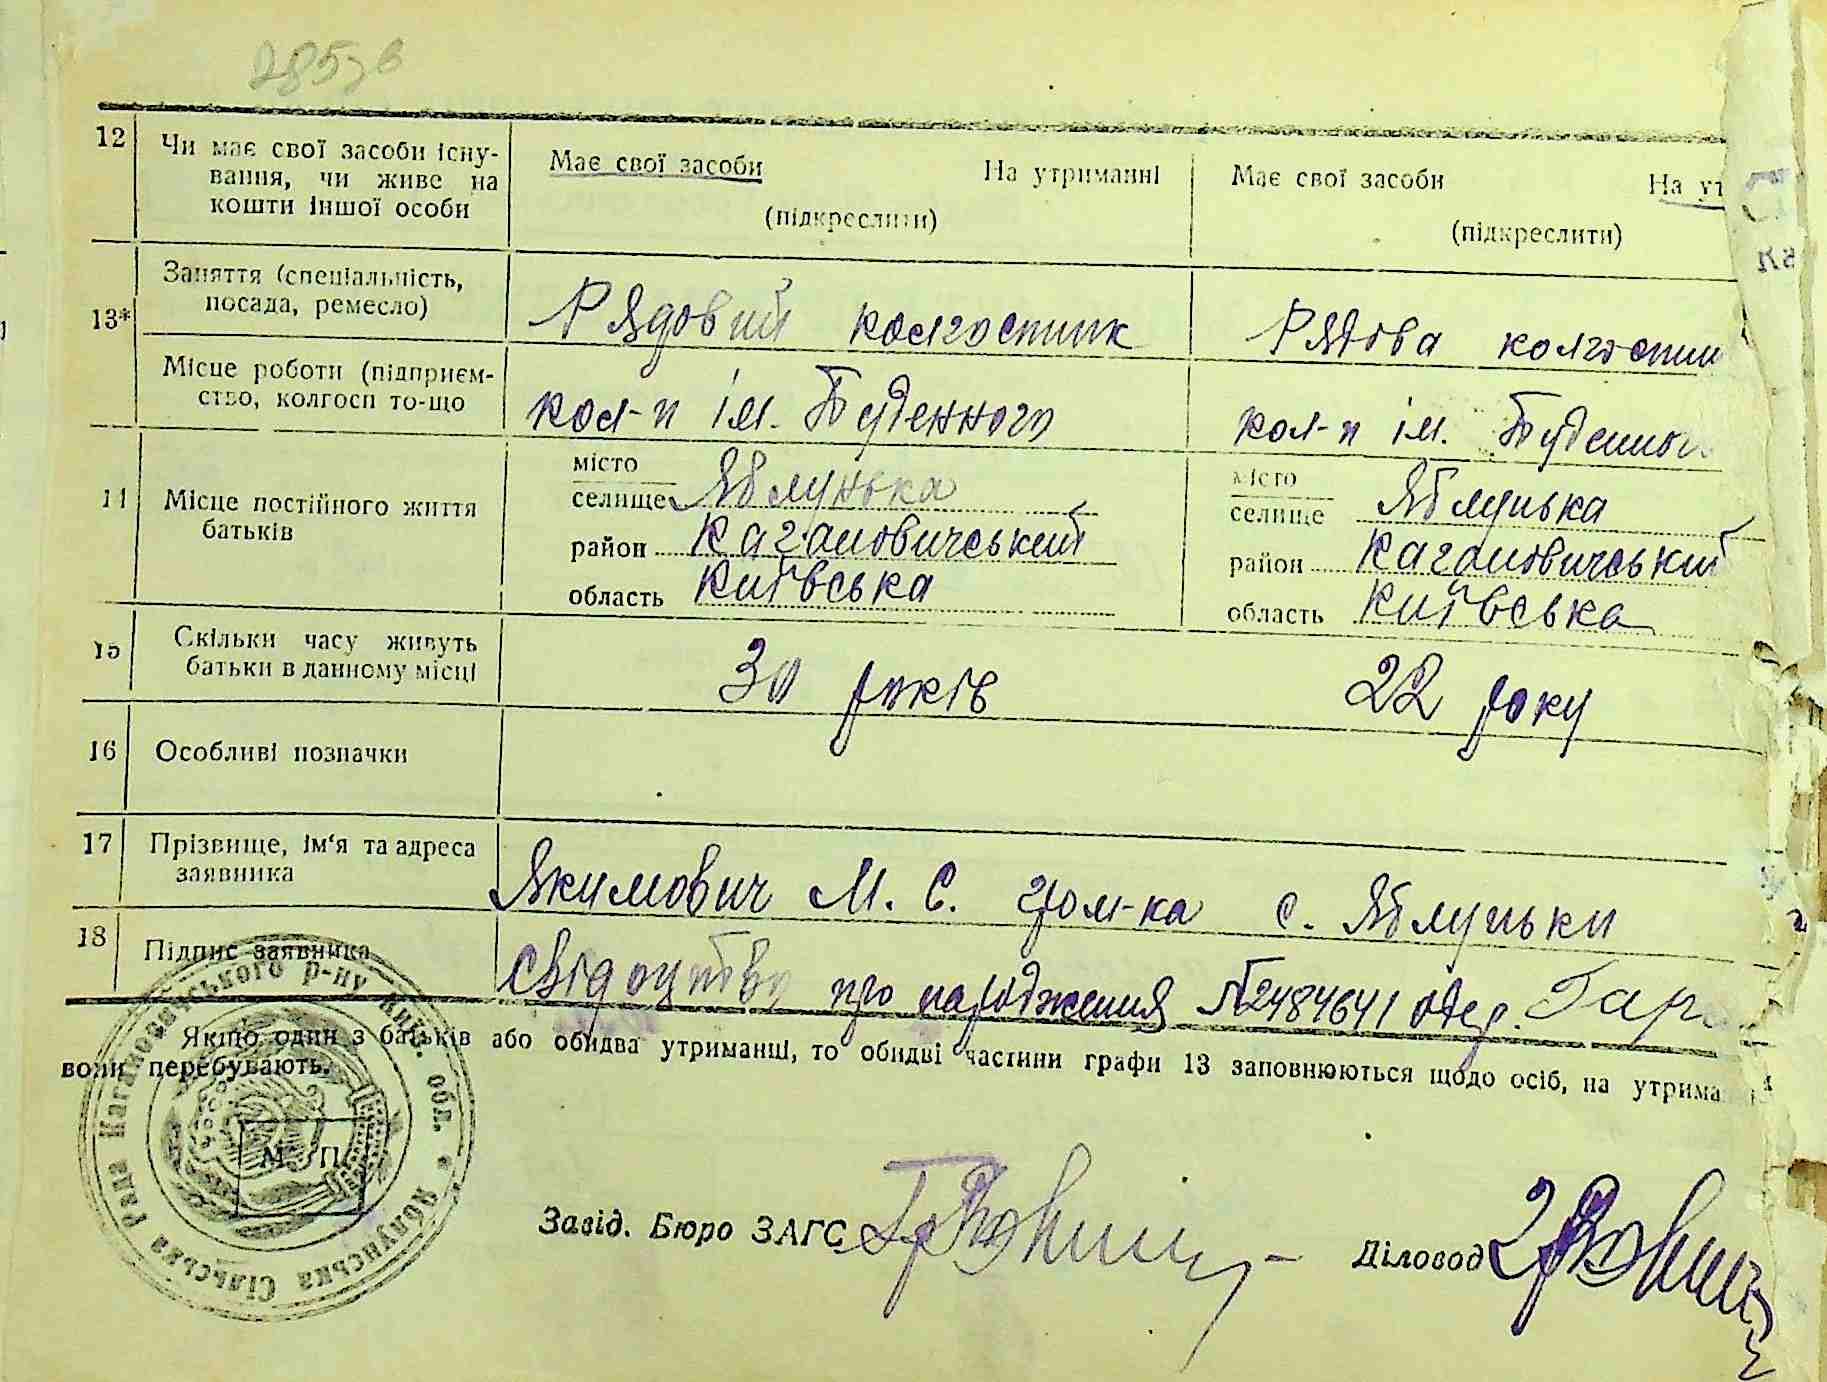 12 Чи має свої засоби існу-
вання, чи живе на
кошти іншої особи
Має свої засоби На утриманні
(підкреслити)
Має свої засоби На ут
(підкреслити)
13* Заняття (спеціальність,
посада, ремесло)
Рядовий колгоспник
Рядова колгоспни
Місце роботи (підприєм-
ство, колгосп то-що
кол-п ім. Буденного
кол-п ім. Буденного
14 Місце постійного життя
батьків
місто
селище Яблунька
район Кагановичський
область Київська
місто
селище Яблунька
район Кагановичський
область Київська
15 Скільки часу живуть
батьки в данному місці
30 років
22 року
16 Особливі позначки
17 Прізвище, ім'я та адреса
заявника
Якимович М. С. гром-ка с. Яблуньки
18 Підпис заявника
Свідоцтво про народження №2484641 одер.
Якщо один з батьків або обидва утриманці, то обидві частини графи 13 заповнюються щодо осіб, на утриманні
вони перебувають.
М. П.
Яблунська Сільська Рада Кагановичського р-ну Київ. обл.
Завід. Бюро ЗАГС
Діловод